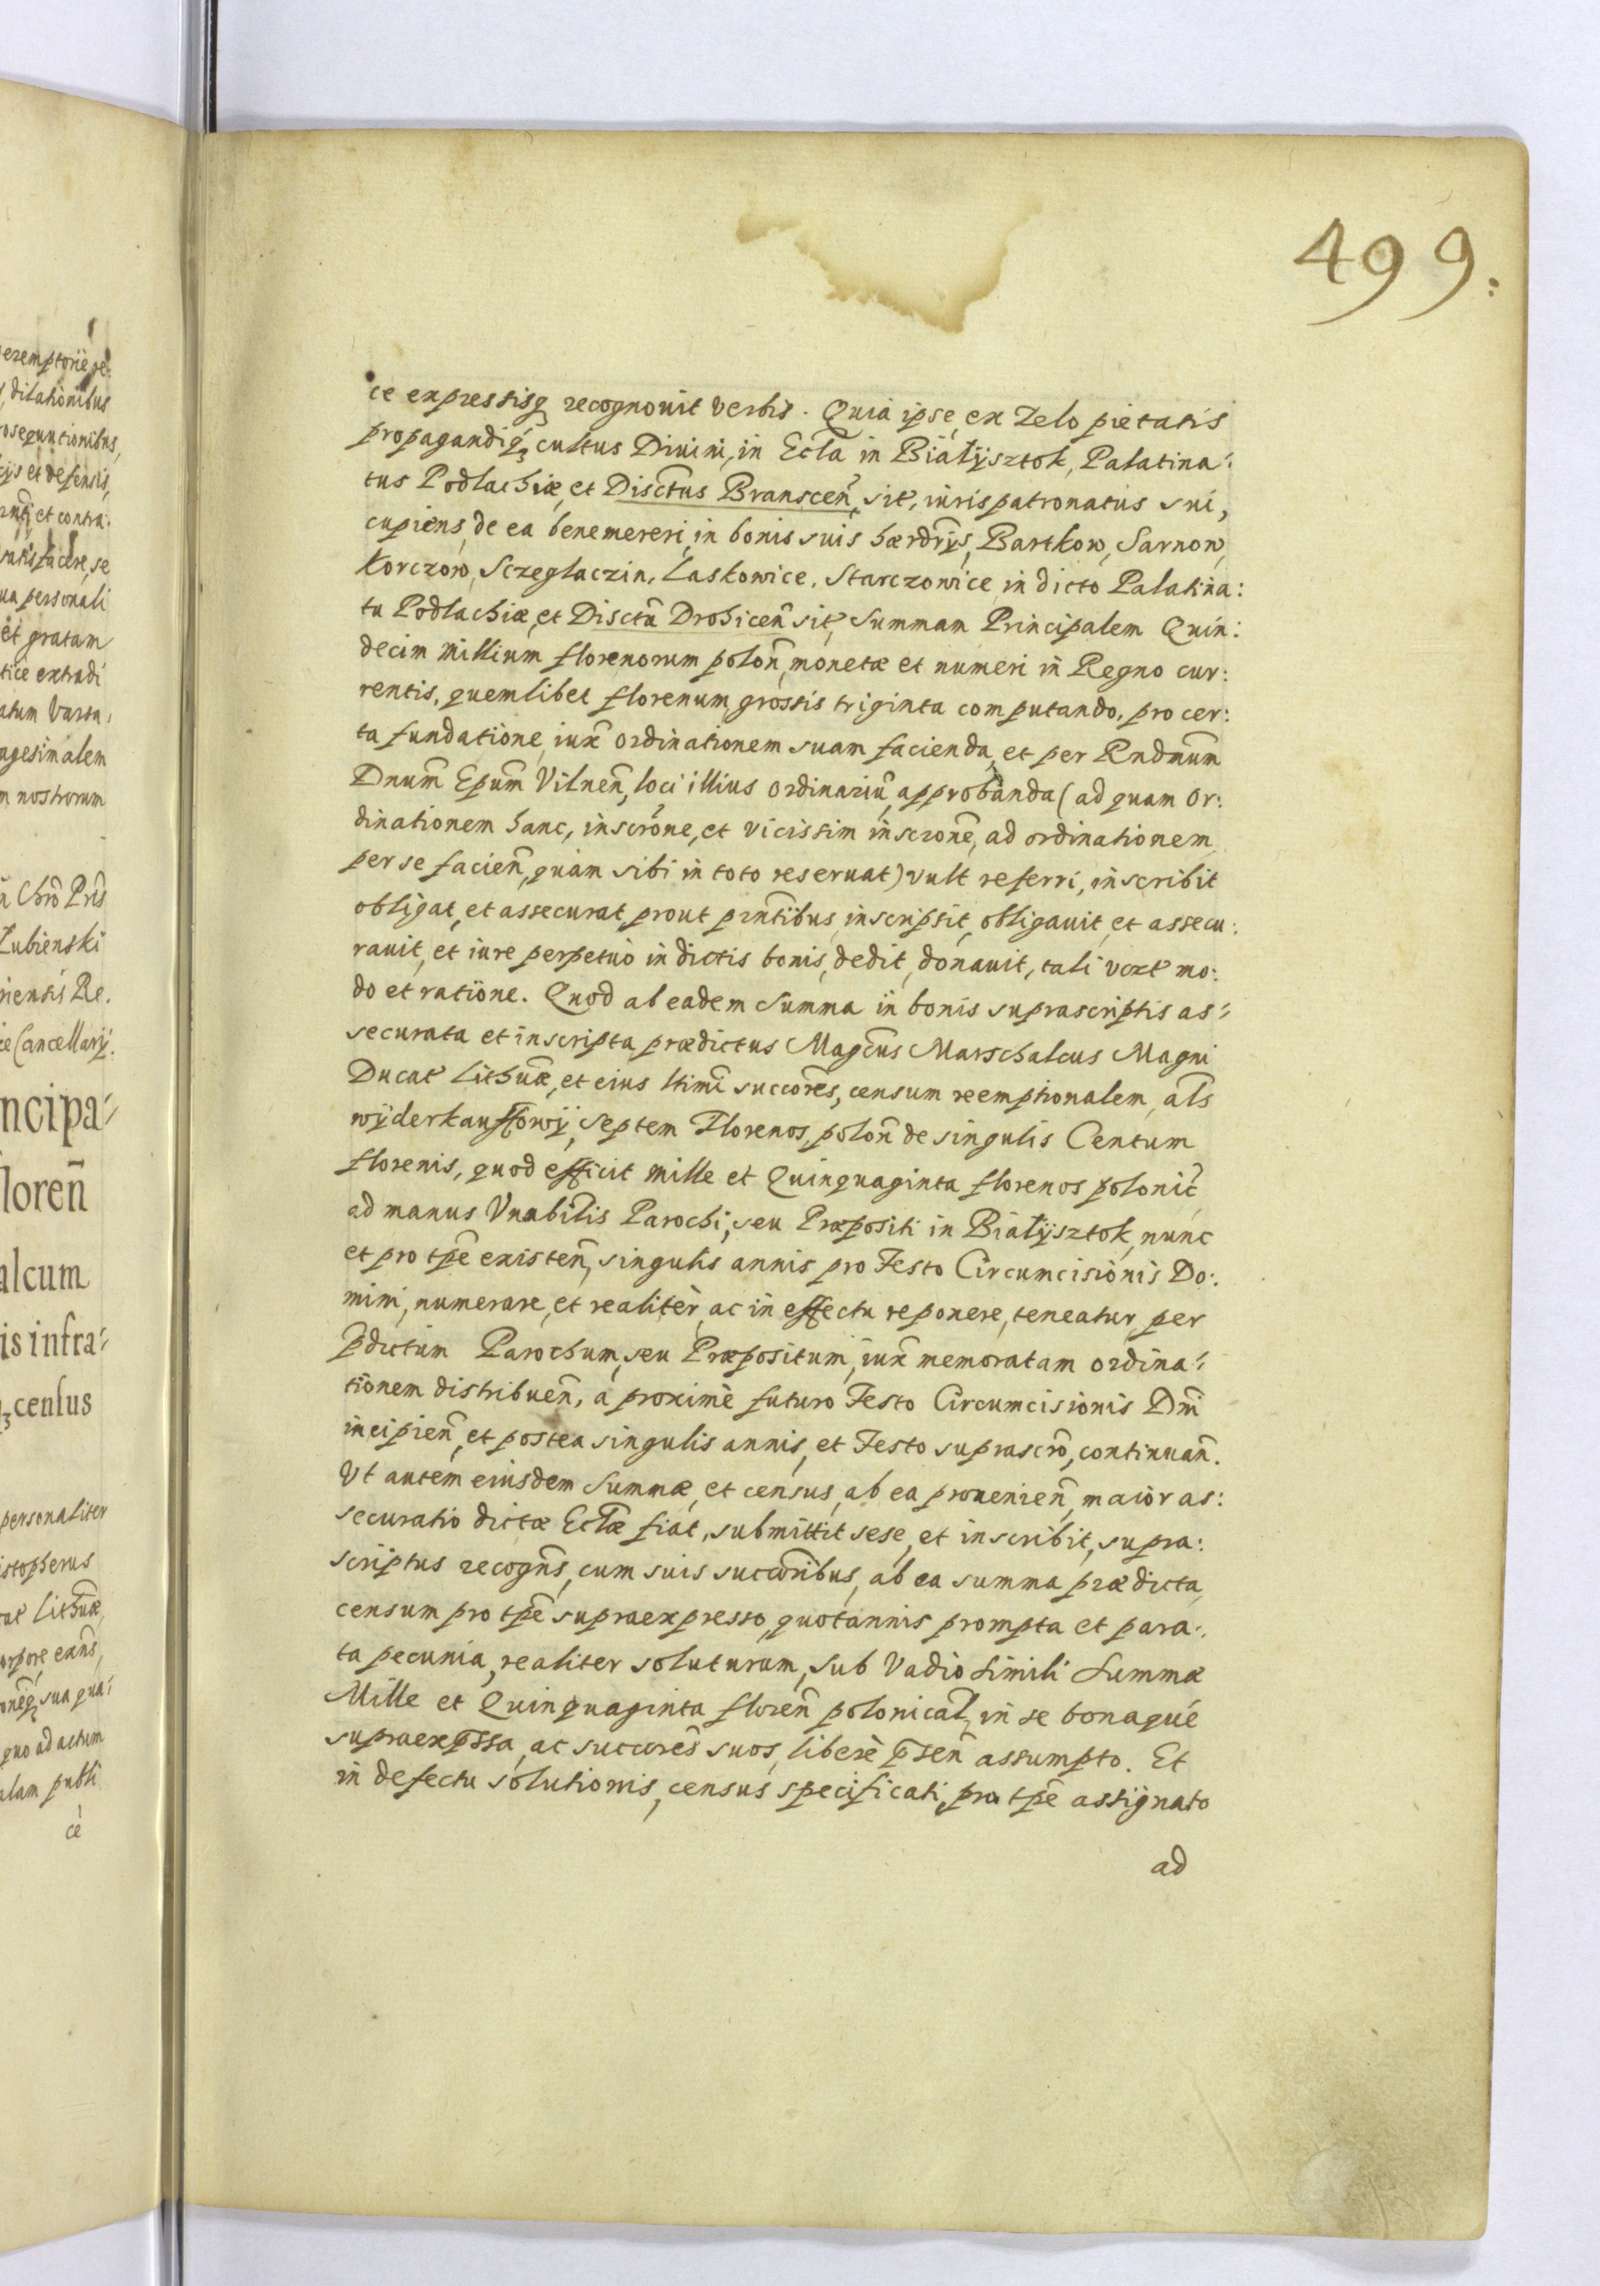 499.
ce expressisq3 recognouit verbis. Quia ipse, ex Zelo pietatis
propagandiq3 cultus Diuini, in Eccla in Białijsztok, Palatina:
tus Podlachiæ, et Disctus Branscen̄, sit, iurispatronatus sui,
cupiens, de ea benemereri, in bonis suis hærdrijs, Bartkow, Sarnow,
Korczow, Sczeglaczin, Laskowice, Starczowice, in dicto Palatina:
tu Podlachiæ, et Disctu Drohicen̄ sit, Summam Principalem Quin:
decim Millium florenorum polon̄, monetæ et numeri in Regno cur:
rentis, quemlibet florenum, grossis triginta computando, pro cer:
ta fundatione, iux̄ ordinationem suam facienda, et per Rndn̄um
Dnum̄ Epum̄ Vilnen̄, loci illius ordinariū, approbanda (ad quam Or:
dinationem hanc, inscrōne, et vicissim inscrōne, ad ordinationem
per se facien̄, quam sibi in toto reseruat) vult referri, inscribit
obligat, et assecurat, prout prn̄tibus, inscripsit, obligauit, et assecu:
rauit, et iure perpetuò in dictis bonis, dedit, donauit, tali vert mo:
do et ratione. Quod ab eadem Summa in bonis suprascriptis as:
securata et inscripta prædictus Magcus̄ Marschalcus Magni
Ducat Lithuǣ, et eius ltimi succores̄, censum reemptionalem, als̄
wijderkauffowij, septem Florenos, polon̄ de singulis Centum
florenis, quod efficit Mille et Quinquaginta florenos polonic̄
ad manus Vnabilis Parochi, seu Præpositi in Białijsztok, nunc
et pro tpe existen̄, singulis annis pro Festo Circumcisionis Do:
mini, numerare, et realitèr, ac in effectu reponere, teneatur, per
pdictum Parochum, seu Præpositum, iux̄ memoratam ordina:
tionem distribuen̄, à proximè futuro Festo Circumcisionis Dn̄i
incipien̄, et postea singulis annis, et Festo suprascrō, continuan̄.
Vt autem eiusdem Summæ, et census, ab ea prouenien̄, maior as:
securatio dictæ Ecclǣ fiat, submittit sese, et inscribit, supra:
scriptus recogn̄s, cum suis succoribus, ab ea summa prædicta,
censum pro tpe supraexpresso, quotannis prompta et para:
ta pecunia, realiter soluturum, sub Vadio simili Summæ
Mille et Quinquaginta floren̄ polonical, in se bonaque
supraexpssa, ac succores̄ suos, liberè psen̄ assumpto. Et
in defectu solutionis, census specificati, pro tpe assignato
ad